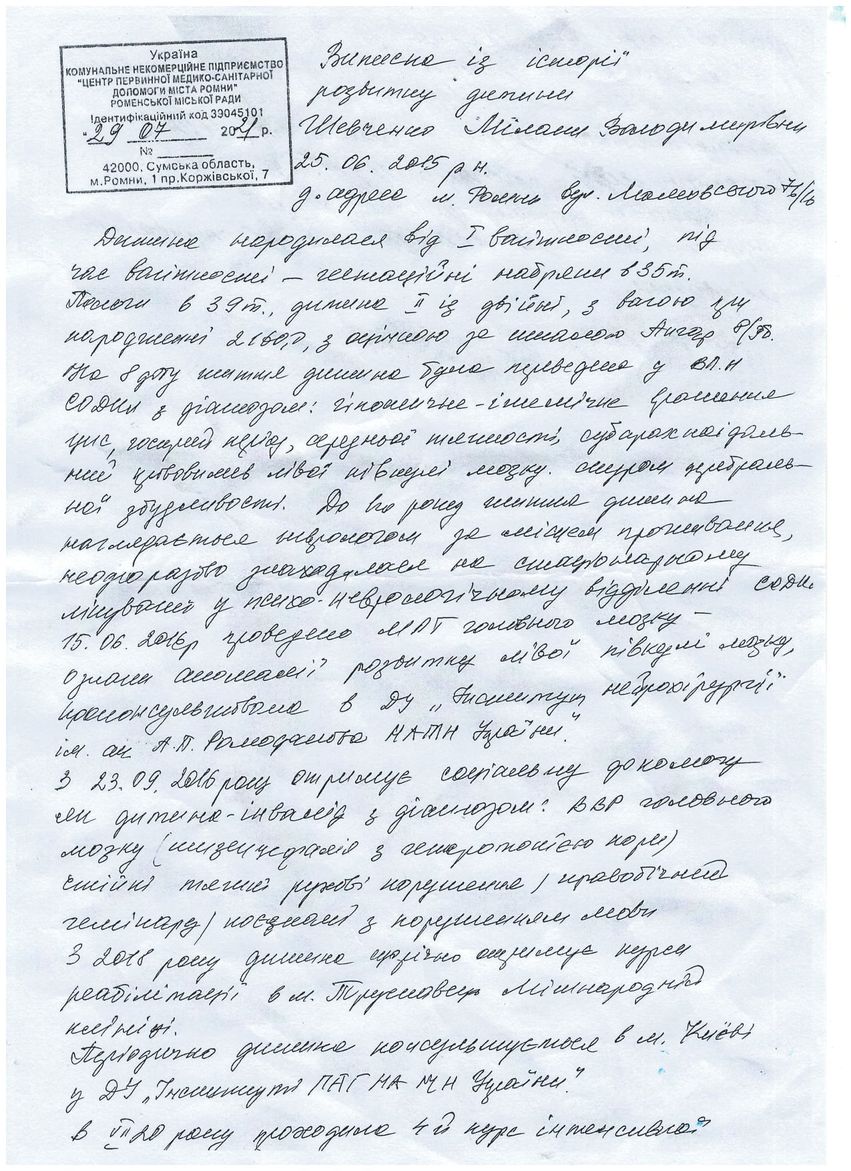 Україна
КОМУНАЛЬНЕ НЕКОМЕРЦІЙНЕ ПІДПРИЄМСТВО
"ЦЕНТР ПЕРВИННОЇ МЕДИКО-САНІТАРНОЇ
ДОПОМОГИ МІСТА РОМНИ"
РОМЕНСЬКОЇ МІСЬКОЇ РАДИ
Ідентифікаційний код 39045101
"29 07 2021 р.
№
42000, Сумська область,
м.Ромни, 1 пр.Коржівської, 7
Виписка із історії
розвитку дитини
Шевченко Мілани Володимирівни
25. 06. 2015 р н.
д. адреса м. Ромни вул.
Дитина народилася від I вагітності, під
час вагітності – гестаційні набряки в 35т.
Пологи в 39т., дитина II із двійні, з вагою при
народженні 2160,0, з оцінкою за шкалою Апгар
На 8 добу життя дитина була переведена у
СОДКЛ з діагнозом: гіпоксично-ішемічне ураження
цнс, гострий період, середньої тяжкості, субарахноїдаль-
ний крововилив лівої півкулі мозку. синдром церебраль-
ної збудливості. До 1го року життя дитина
наглядається неврологом за місцем проживання,
неодноразово знаходилася на стаціонарному
лікуванні у психо-неврологічному відділенні СОДКЛ
15. 06. 2016р проведено МРТ головного мозку –
ознаки аномалії розвитку лівої півкулі мозку,
проконсультована в ДУ „Інститут нейрохірургії
ім. ак А.П. Ромоданова НАМН України".
З 23.09. 2016 року отримує соціальну допомогу
як дитина-інвалід з діагнозом: ВВР головного
мозку (шизенцефалія з гетеротопією кори)
стійкі тяжкі рухові порушення / правобічний
геміпарез / поєднані з порушенням мови
З 2018 року дитина щорічно отримує курси
реабілітації в м. Трускавець Міжнародній
клініці.
Періодично дитина консультується в м. Києві
у ДУ „Інституті ПАГ НАМН України".
в VII 20 року проходила 4й курс інтенсивної